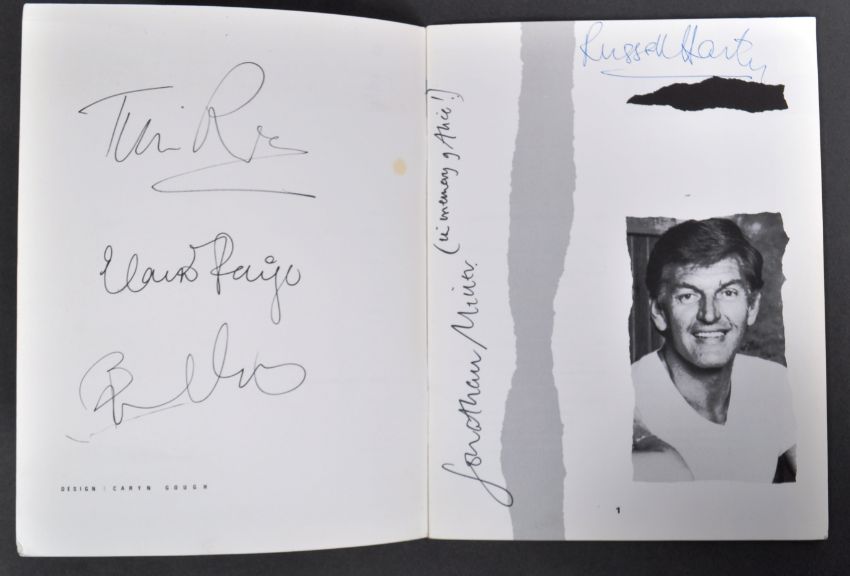 Tim Rice
Elaine Paige
DESIGN | CARYN GOUGH
Russell Harty
Jonathan Miller. (in memory of Alice!)
1